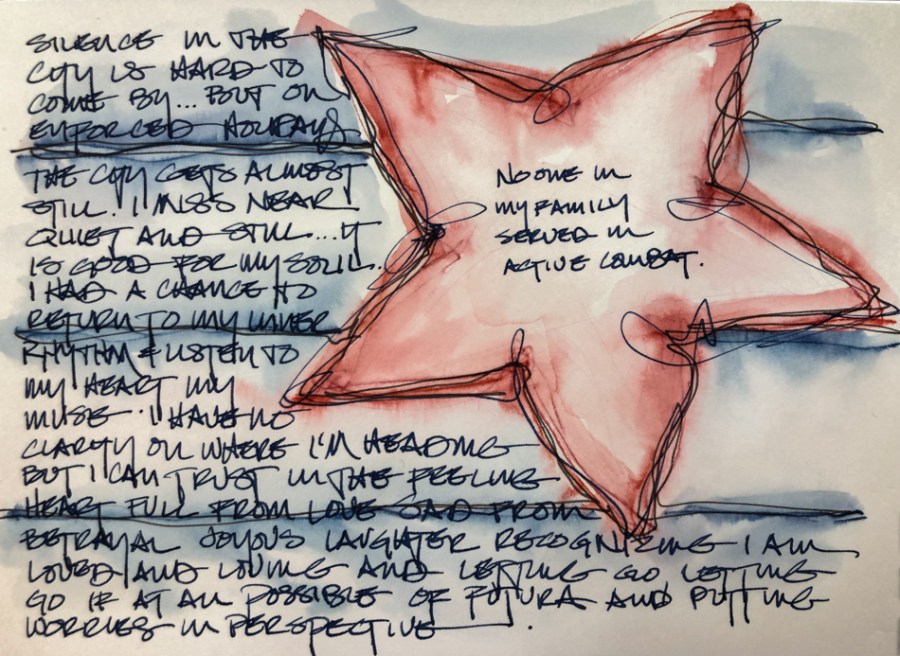 SILENCE IN THE
CITY IS HARD TO
COME BY... BUT ON
ENFORCED HOLIDAYS
THE CITY GETS ALMOST
STILL. I MISS NEAR
QUIET AND STILL... IT
IS GOOD FOR MY SOUL..
I HAD A CHANCE TO
RETURN TO MY INNER
RHYTHM & LISTEN TO
MY HEART MY
MUSE. I HAVE NO
CLARITY ON WHERE I'M HEADING
BUT I CAN TRUST IN THE FEELING
HEART FULL FROM LOVE SAD FROM
BETRAYAL JOYOUS LAUGHTER RECOGNIZING I AM
LOVED AND LOVING AND LETTING GO LETTING
GO IF AT ALL POSSIBLE OF FUTURA AND PUTTING
WORRIES IN PERSPECTIVE.
NO ONE IN
MY FAMILY
SERVED IN
ACTIVE COMBAT.